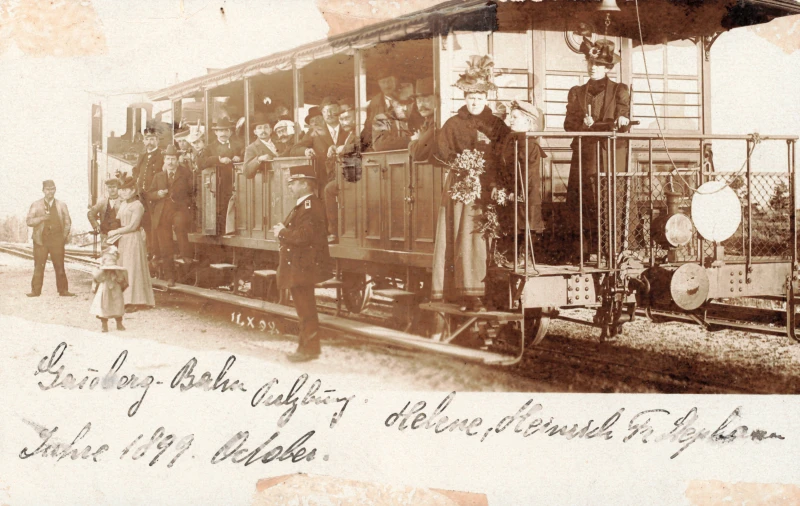 11.X.99.
Gaisberg-Bahn Salzburg.
Jahre 1899. October.
Helene, Heinrich Fr Stephan